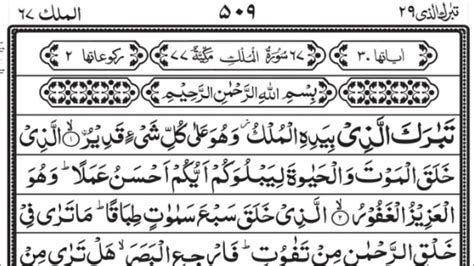 تبرك الذى ٢٩ ٥٠٩ الملك ٦٧
اٰیاتها ٣٠ ٦٧ سُوْرَةُ الْمُلْكِ مَكِّيَّةٌ ٧٧ رکوعاتها ٢
بِسْمِ اللّٰهِ الرَّحْمٰنِ الرَّحِيْمِ
تَبٰرَكَ الَّذِىْ بِيَدِهِ الْمُلْكُ وَهُوَ عَلٰى كُلِّ شَىْءٍ قَدِيْرُ ۙ ۝١ الَّذِىْ
خَلَقَ الْمَوْتَ وَالْحَيٰوةَ لِيَبْلُوَكُمْ اَيُّكُمْ اَحْسَنُ عَمَلًا ؕ وَهُوَ
الْعَزِيْزُ الْغَفُوْرُ ۙ ۝٢ الَّذِىْ خَلَقَ سَبْعَ سَمٰوٰتٍ طِبَاقًا ؕ مَا تَرٰى فِىْ
خَلْقِ الرَّحْمٰنِ مِنْ تَفٰوُتٍ ؕ فَارْجِعِ الْبَصَرَ ۙ هَلْ تَرٰى مِنْ